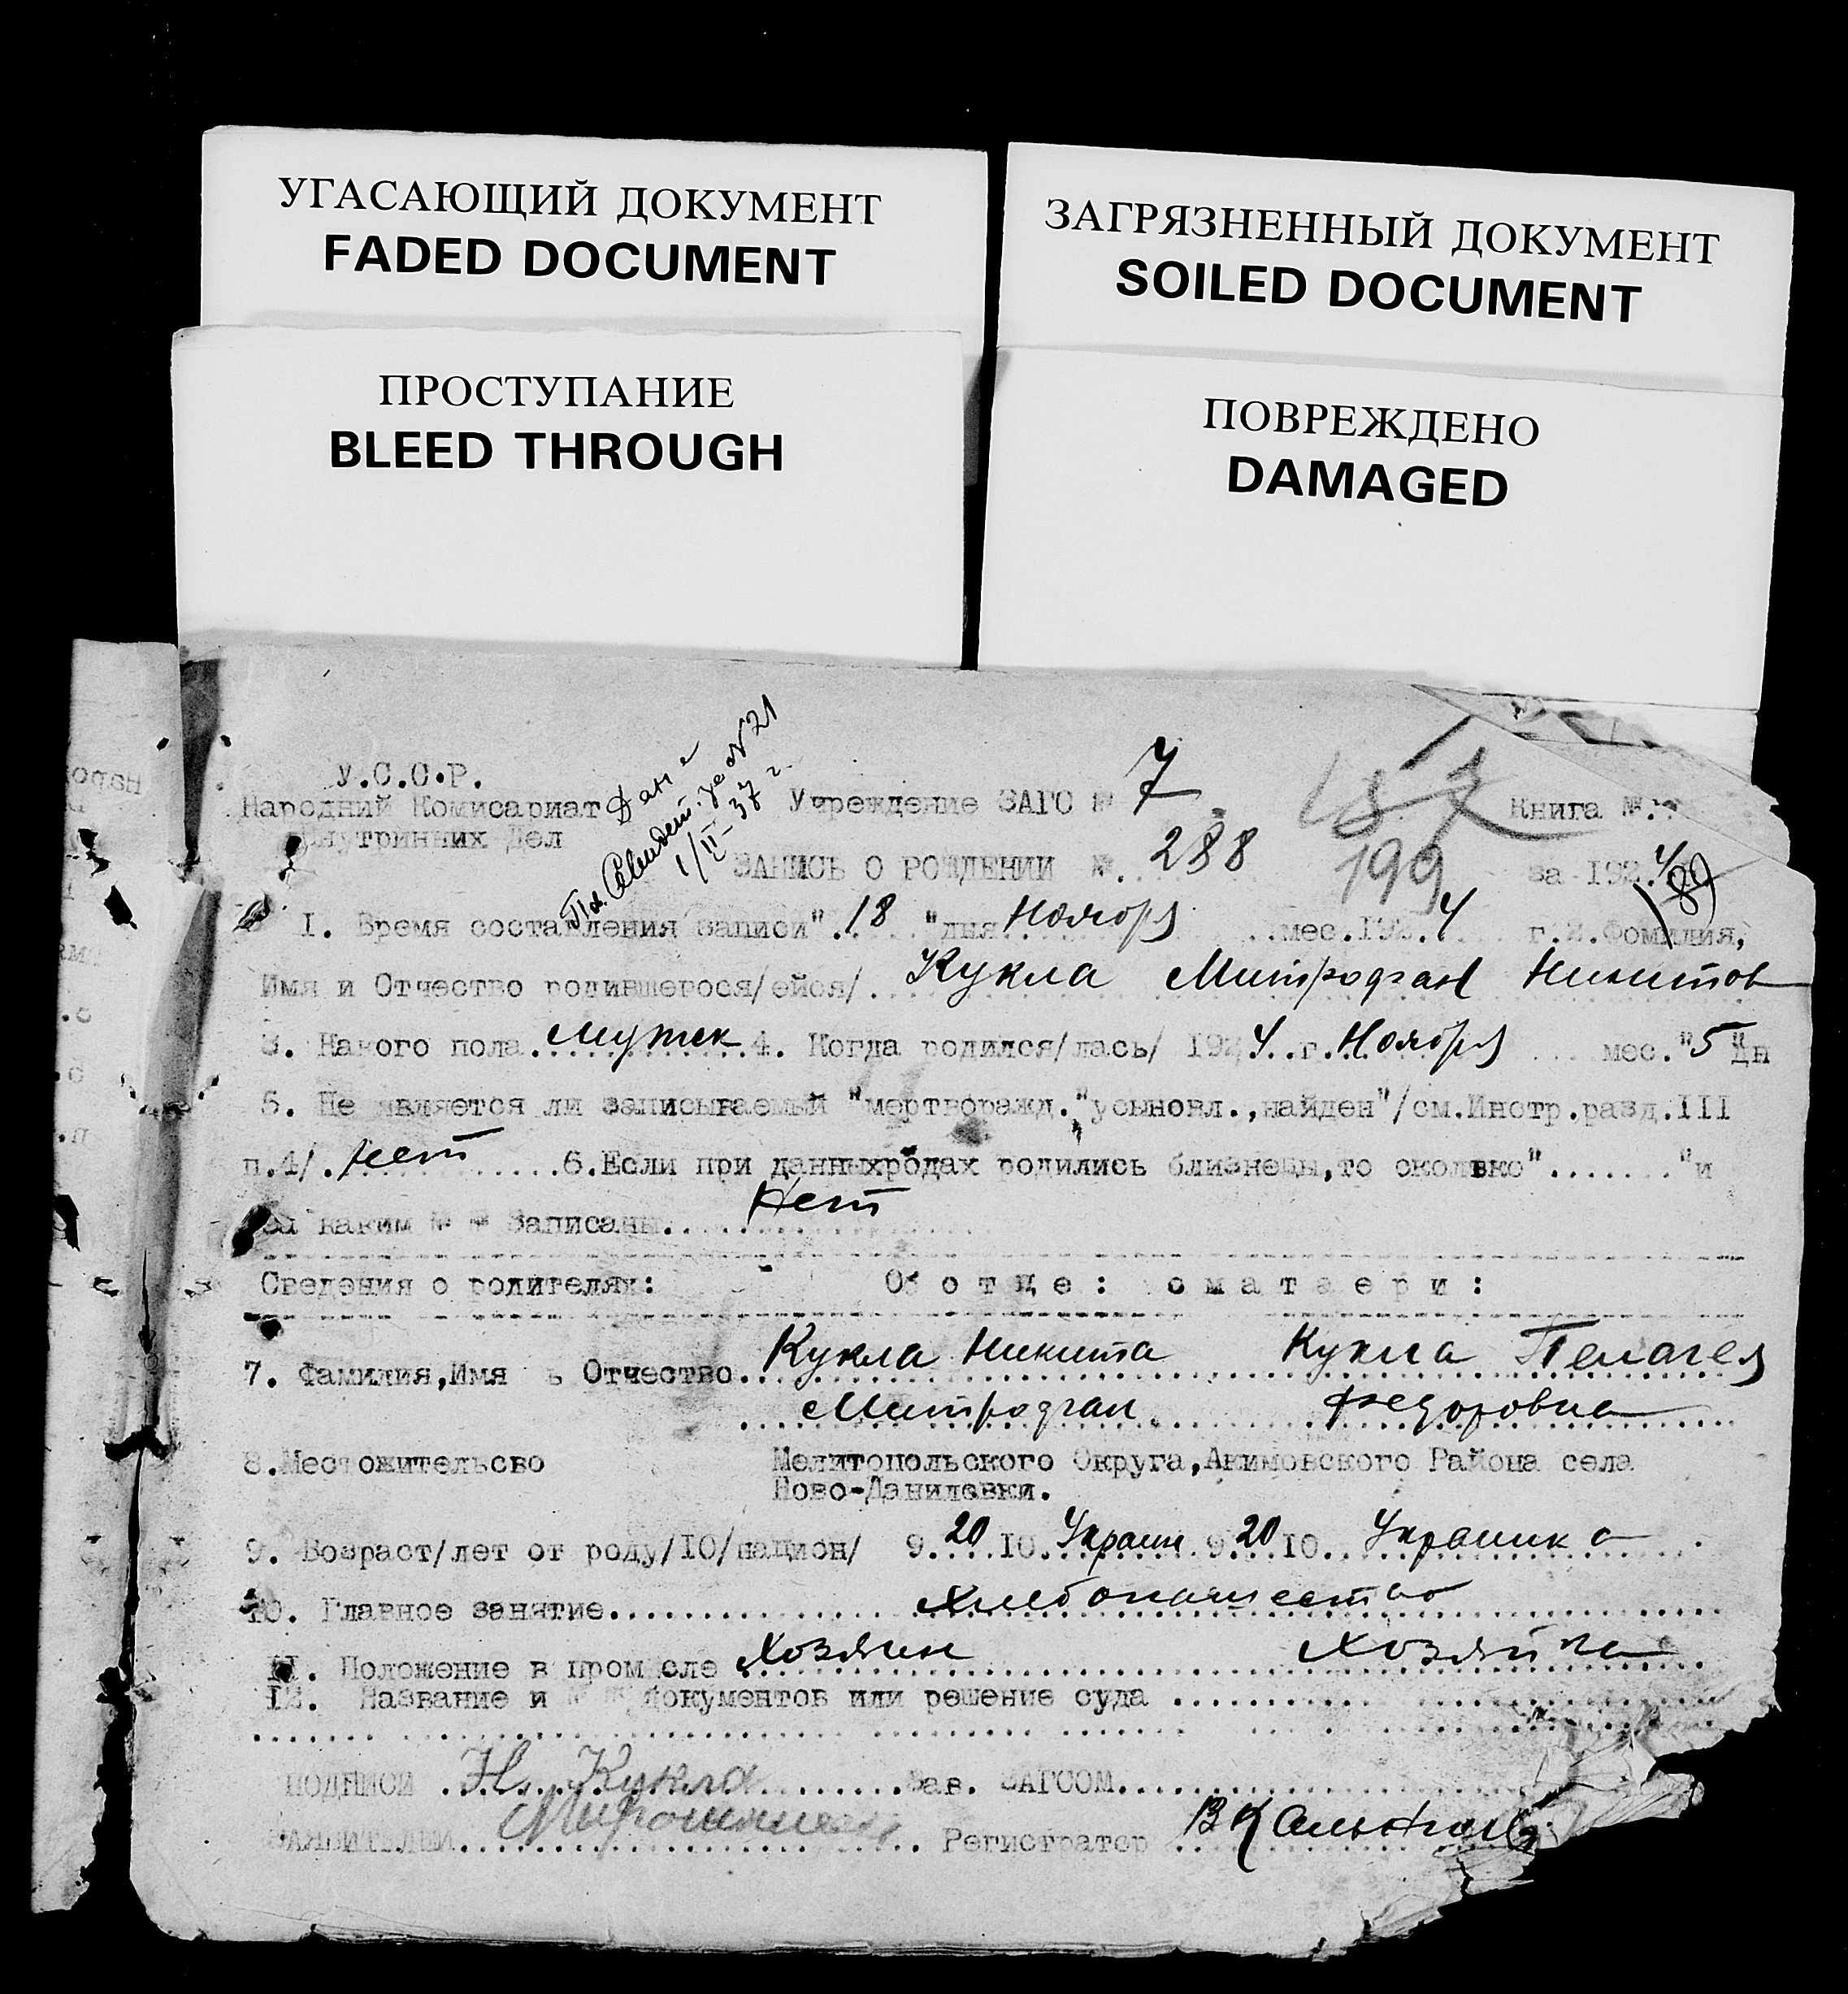 УГАСАЮЩИЙ ДОКУМЕНТ
FADED DOCUMENT
ЗАГРЯЗНЕННЫЙ ДОКУМЕНТ
SOILED DOCUMENT
ПРОСТУПАНИЕ
BLEED THROUGH
ПОВРЕЖДЕНО
DAMAGED
У.С.С.Р.
Народний Комисариат
Внутринних Дел
Дан
Свидет. за №21
1/II-37 г.
Учреждение ЗАГС № 7
187
Книга №.
ЗАПИСЬ О РОЖДЕНИИ №. 288
199
за 192.4
189
I. Время составления записи" 18 "дня Ноября мес.192.4 г.2.Фомилия,
Имя и Отчество родившегося/ейся/. Кукла Митрофан Никитов
3. Какого пола мужск 4. Когда родился/лась/ 192 4 г. Ноября мес."5"дн
5. Не является ли записываемый "мертворажд."усыновл.,найден"/см.Инстр.разд.III
п.4/. нет 6.Если при данныхродах родились близнецы,то сколько"......."и
за каким № № Записаны. Нет
Сведения о родителях: О о т ц е : о м а т а е р и :
7. Фамилия,Имя ь Отчество. Кукла Никита Кукла Пелагея
Митрофан Федоровна
8.Местожительсво Мелитопольского Округа,Акимовского Района села
Ново-Даниловки.
9. Возраст/лет от роду/IO/национ/ 9. 20 IO. Украин 9. 20 IO. Украинка
IO. Главное занятие. Хлебопашество
II. Положение в пром сле Хозяин Хозяйка
I2. Название и № № документов или решение суда
ПОДПИСИ Н. Кукла Зав. ЗАГСОМ
ЗАЯВИТЕЛЕЙ Регистратор